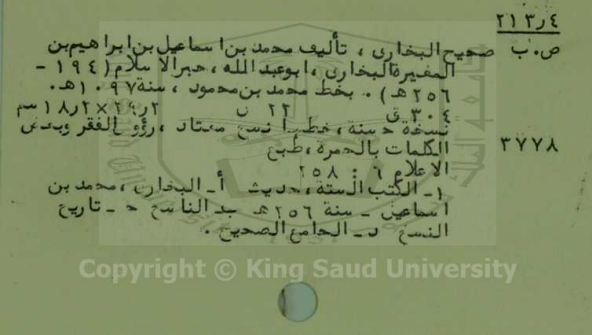 ٢١٣٫٤
ص.ب صحيح البخارى ، تأليف محمد بن اسماعيل بن ابراهيم بن
المغيرة البخارى ، ابوعبد الله ، حبر الاسلام (١٩٤ -
٢٥٦هـ) . بخط محمد بن محمود ، سنة ١٠٩٧هـ.
٣٠٤ ق ٢٢ س ٢٩٫٢×١٨٫٢ سم
٣٧٧٨ نسخة حسنة ، خطها نسخ معتاد ، رؤوس الفقر وبعض
الكلمات بالحمرة ، طبع
الاعلام ٦ : ٢٥٨
١- الكتب الستة ، حديث أ- البخارى ، محمد بن
اسماعيل - سنة ٢٥٦هـ ب- الناسخ ج - تاريخ
النسخ د- الجامع الصحيح .
Copyright © King Saud University